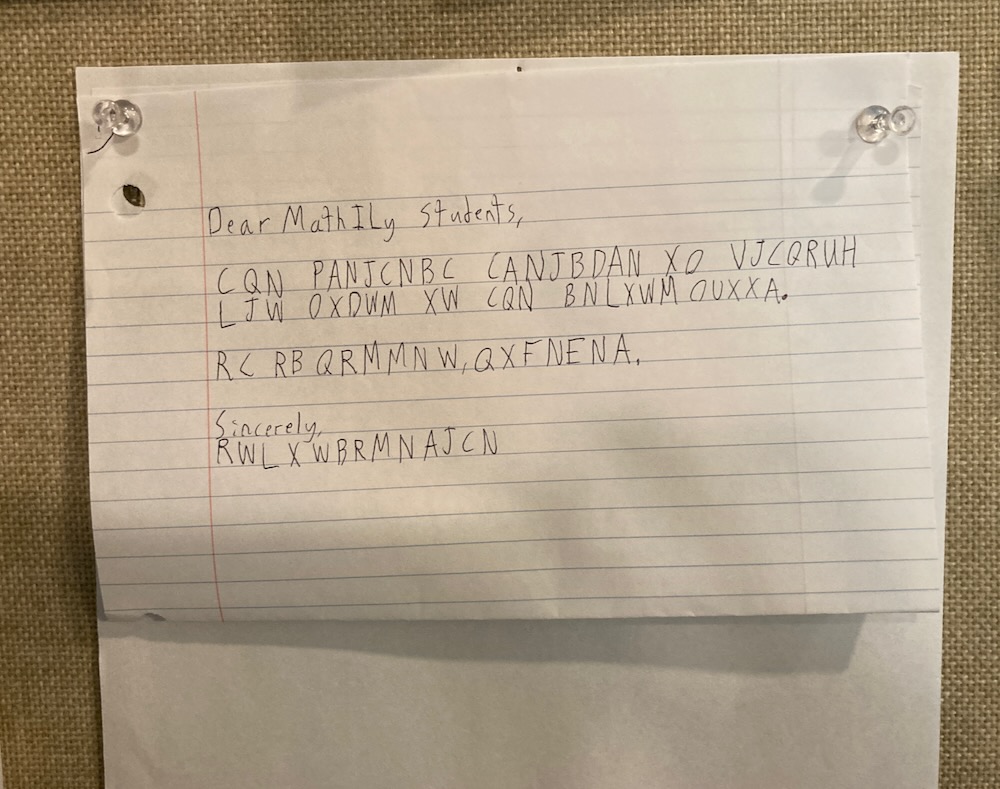 Dear MathILy students,
CQN PANJCNBC CANJBDAN XO VJCQRUH
LJW OXDWM XW CQN BNLXWM OUXXA.
RC RB QRMMNW, QXFNENA.
Sincerely,
RWLXWBRMNAJCN